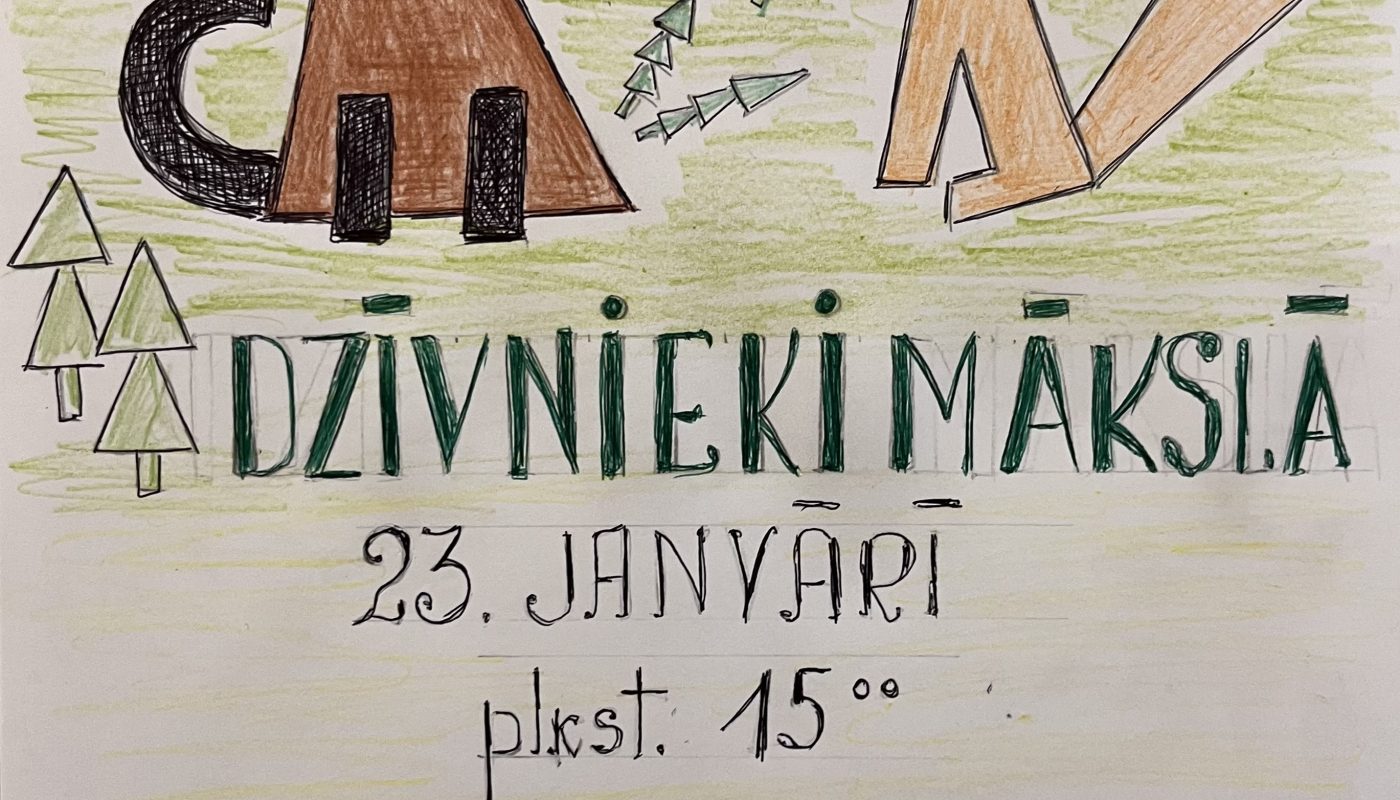 DZĪVNIEKI MĀKSLĀ
23. JANVĀRĪ
plkst. 15⁰⁰